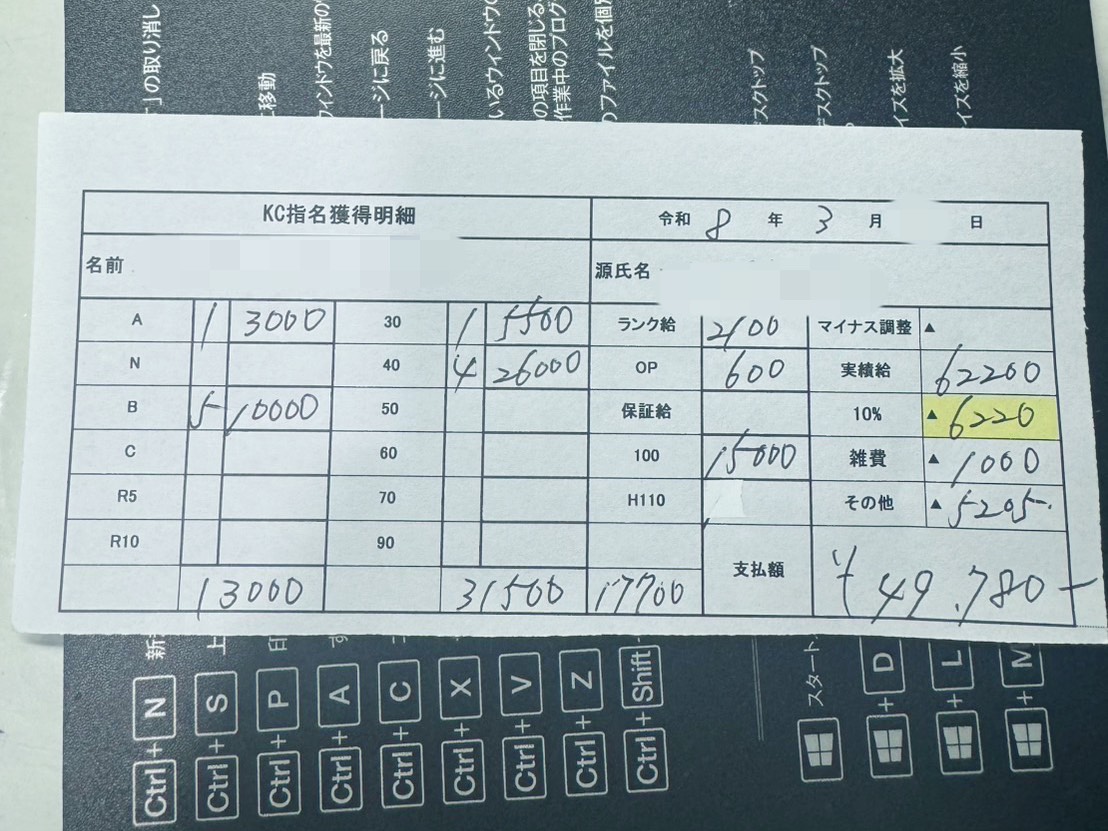 」の取り消し
に移動
ウィンドウを最新の
ージに戻る
ージに進む
いるウィンドウの
の項目を閉じる
作業中のプログ
のファイルを個別
デスクトップ
デスクトップ
イズを拡大
イズを縮小
KC指名獲得明細 令和 8 年 3 月 日
名前 源氏名
A 1 3000 30 1 5500 ランク給 2100 マイナス調整 ▲
N 40 4 26000 OP 600 実績給 62200
B 5 10000 50 保証給 10% ▲ 6220
C 60 100 15000 雑費 ▲ 1000
R5 70 H110 その他 ▲ 5205-
R10 90
13000 31500 17700 支払額 ¥49.780-
Ctrl + N 新
Ctrl + S 上
Ctrl + P 印
Ctrl + A す
Ctrl + C コ
Ctrl + X
Ctrl + V
Ctrl + Z
Ctrl + Shift
スタート
+ D
+ L
+ M